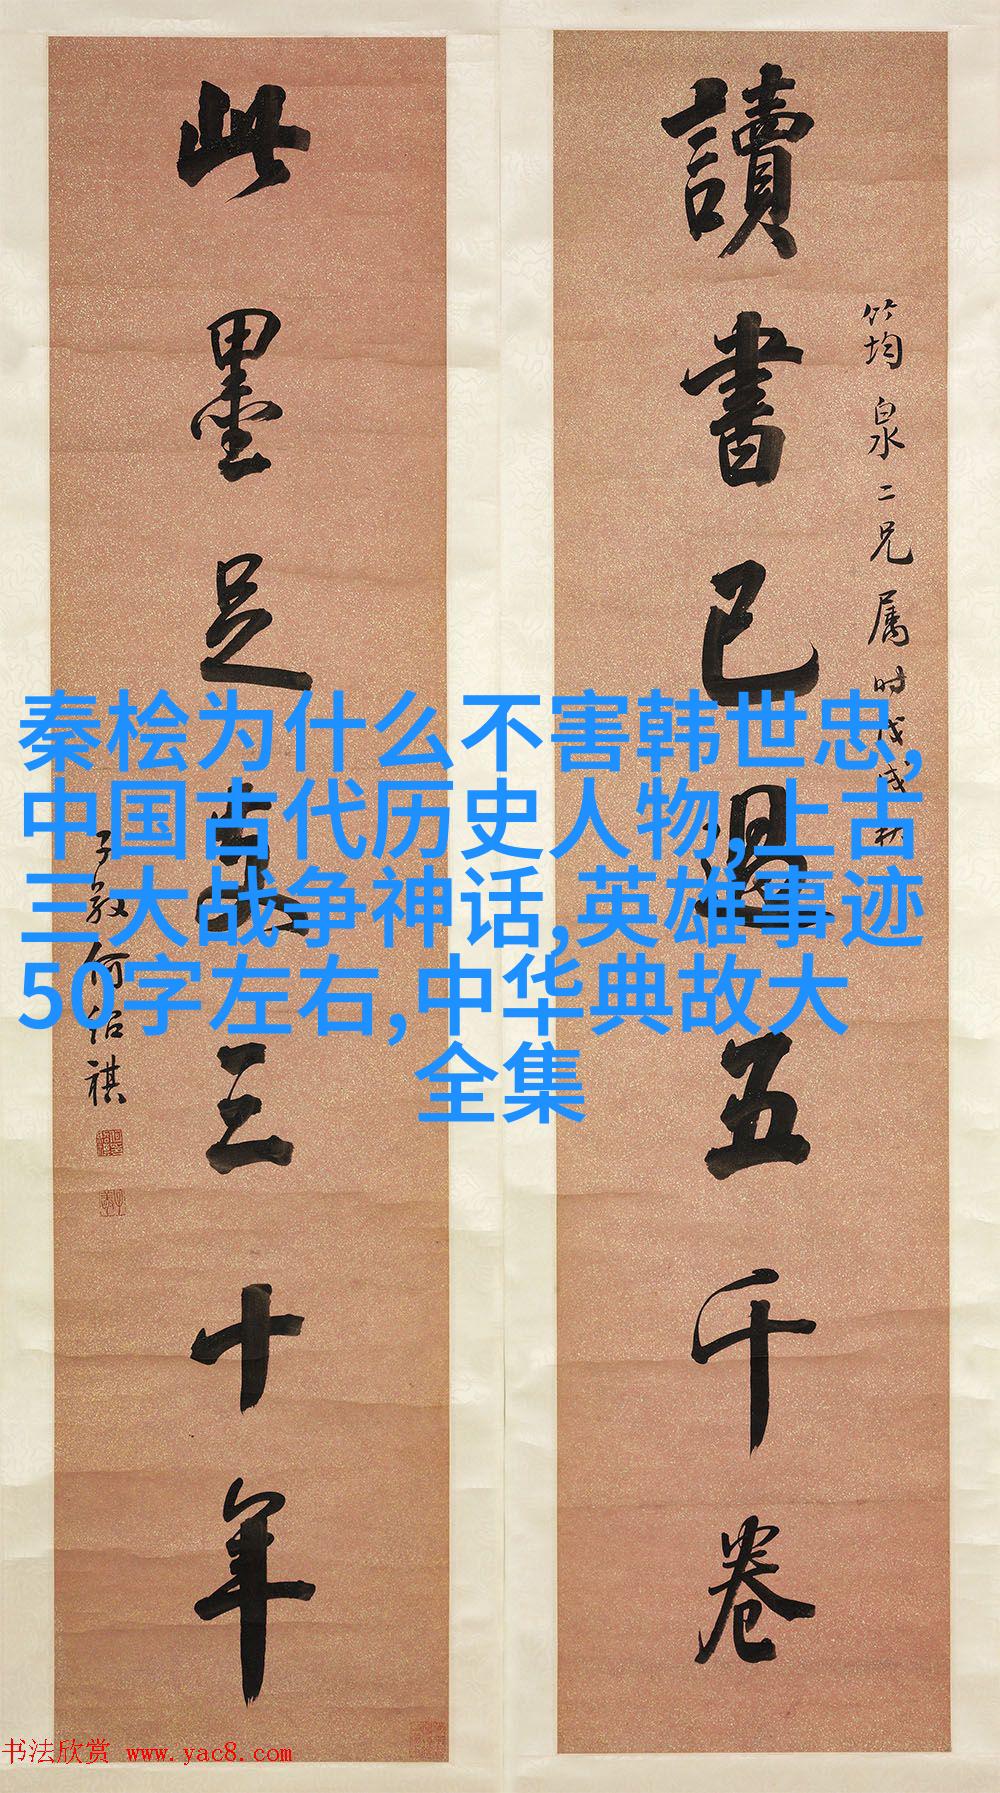 讀書已過五千卷
竹均泉二兄属时戊戌秋
此墨足
三十年
子毅何绍祺
秦桧为什么不害韩世忠,
中国古代历史人物,上古
三大战争神话,英雄事迹
50字左右,中华典故大
全集
书法欣赏 www.yac8.com